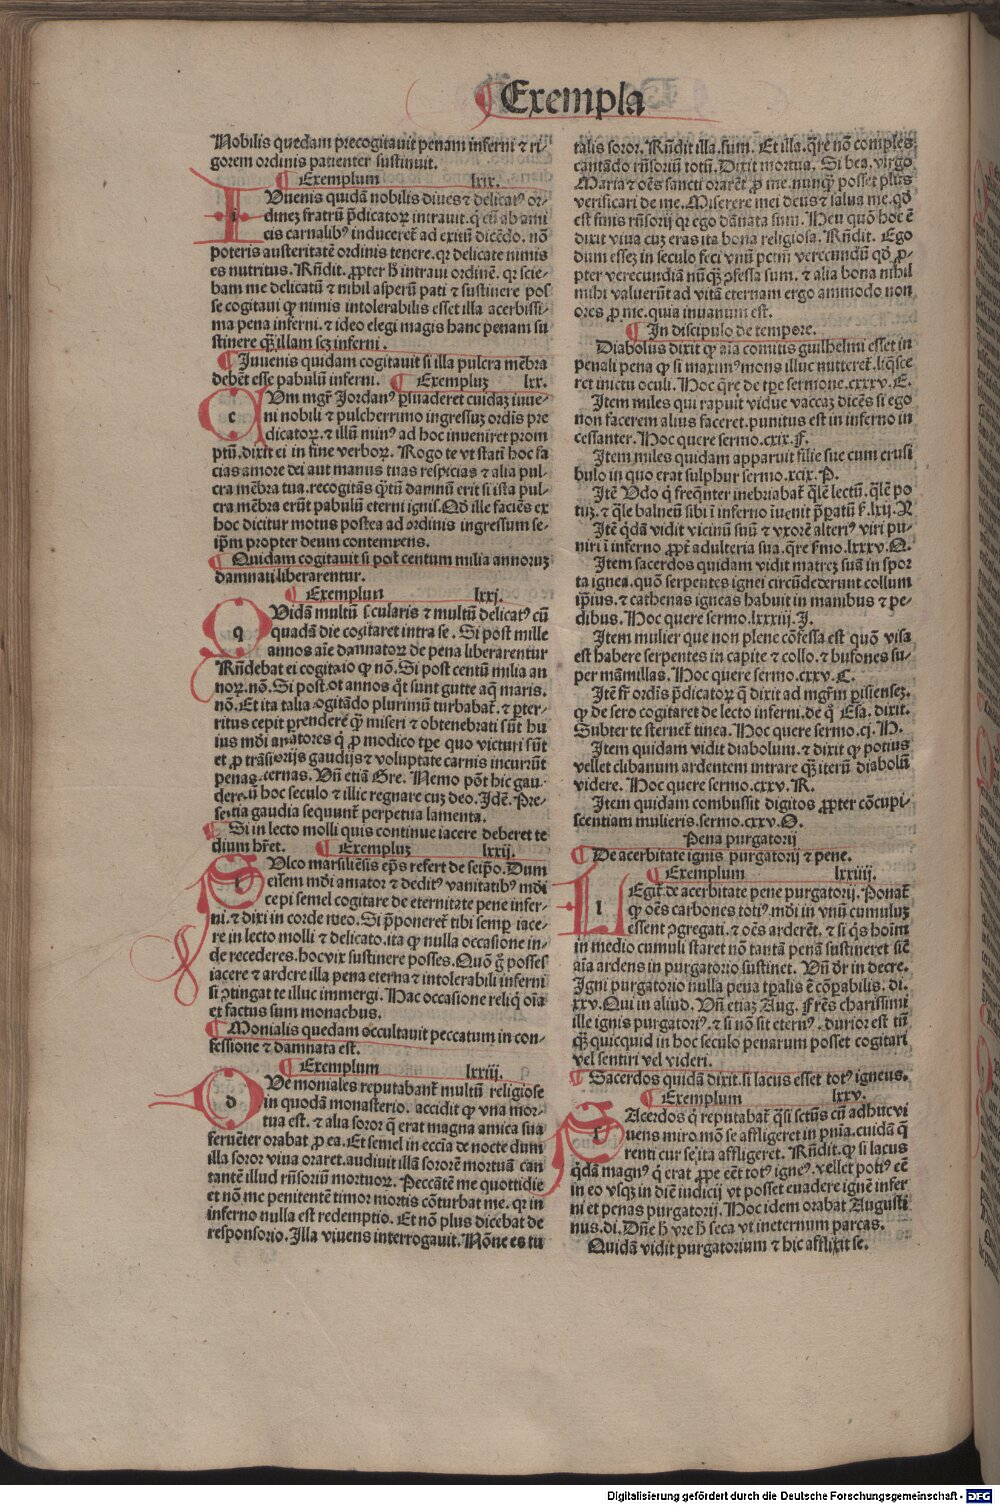 Exempla
Nobilis quedam precogitauit penam inferni ⁊ ri-
gorem ordinis patienter sustinuit.
Exemplum lxix.
IVuenis quidã nobilis diues ⁊ delicat⁹ or-
dinez fratrũ p̃dicatoꝝ intrauit. q̃ cũ ab ami
cis carnalib⁹ induceret̃ ad exitũ dicẽdo. nõ
poteris austeritatẽ ordinis tenere. qꝛ delicate nimis
es nutritus. Rñdit. ꝓpter h̃ intraui ordinẽ. qꝛ scie-
bam me delicatũ ⁊ nihil asperũ pati ⁊ sustinere pos
se cogitaui ꝙ nimis intolerabilis esset illa acerbissi-
ma pena inferni. ⁊ ideo elegi magis hanc penam su
stinere q̃ꝫ illam scꝫ inferni.
Iuuenis quidam cogitauit si illa pulcra mẽbra
debẽt esse pabulũ inferni. Exempluz lxx.
CVm mgr̃ Jordan⁹ ꝑsuaderet cuidaz iuue-
ni nobili ⁊ pulcherrimo ingressuz ordis pre
dicatoꝝ. ⁊ illũ min⁹ ad hoc inueniret prom
ptũ. dixit ei in fine verboꝝ. Rogo te vt statĩ hoc fa
cias amore dei aut manus tuas respicias ⁊ alia pul-
cra mẽbra tua. recogitãs q̃tũ damnũ erit si ista pul-
cra mẽbra erũt pabulũ eterni ignis. Qđ ille faciẽs ex
hoc dicitur motus postea ad ordinis ingressum se-
ip̃m propter deum contemnens.
Quidam cogitauit si post centum milia annoruz
damnati liberarentur.
Exemplum lxxj.
QVidã multũ secularis ⁊ multũ delicat⁹ cũ
quadã die cogitaret intra se. Si post mille
annos aĩe dannatoꝝ de pena liberarentur
Rñdebat ei cogitatio ꝙ nõ. Si post centũ milia an
noꝝ. nõ. Si post tot annos q̃t sunt gutte aq̃ maris.
nõ. Et ita talia cogitãdo plurimũ turbabat̃. ⁊ ꝑter-
ritus cepit ꝑrendere q̃ miseri ⁊ obtenebrati sũt hu
ius mũdi amatores q̃ ꝓ modico tp̃e quo victuri sũt
et ꝓ trãsitorijs gaudijs ⁊ voluptate carnis incurrũt
penas eternas. Vñ etiã Gre. Nemo põt hic gau-
dere cũ hoc seculo ⁊ illic regnare cuz deo. Idẽ. Pre-
sentia gaudia sequunt̃ perpetua lamenta.
Si in lecto molli quis continue iacere deberet te
dium hr̃et. Exempluz lxxij.
FVlco marsiliẽsis ep̃s refert de seip̃o. Dum
essem mũdi amator ⁊ dedit⁹ vanitatib⁹ mũdi
cepi semel cogitare de eternitate pene infer-
ni. ⁊ dixi in corde meo. Si p̃poneret̃ tibi semꝑ iace-
re in lecto molli ⁊ delicato. ita ꝙ nulla occasione in-
de recederes. hoc vix sustinere posses. Quõ g̃ posses
iacere ⁊ ardere illa pena eterna ⁊ intolerabili inferni
si ꝯtingat te illuc immergi. Hac occasione reliq̃ oĩa
et factus sum monachus.
Monialis quedam occultauit peccatum in con-
fessione ⁊ damnata est.
Exemplum lxxiij.
DVe moniales reputabant̃ multũ religiose
in quodã monasterio. accidit ꝙ vna mor-
tua est. ⁊ alia soror q̃ erat magna amica sua
feruẽter orabat ꝓ ea. Et semel in ecclĩa de nocte dum
illa soror viua oraret. audiuit illã sororẽ mortuã can
tantẽ illud rñsoriũ mortuoꝝ. Peccãtẽ me quottidie
et nõ me penitentẽ timor mortis cõturbat me. qꝛ in
inferno nulla est redemptio. Et nõ plus dicebat de
responsorio. Illa viuens interrogauit. Nõne es tu
talis soror. Rñdit illa. sum. Et illa. q̃re nõ comples
cantãdo rñsoriũ totũ. Dixit mortua. Si bea. virgo
Maria ⁊ oẽs sancti orarẽt ꝓ me. nunq̃ posset plus
verificari de me. Miserere mei deus ⁊ salua me. qđ
est finis rñsorij qꝛ ego dãnata sum. Heu quõ hoc ẽ
dixit viua cuz eras ita bona religiosa. Rñdit. Ego
dum essez in seculo feci vnũ petm̃ verecundũ qđ ꝓ-
pter verecundiã nũq̃ꝫ ꝯfessa sum. ⁊ alia bona nihil
mihi valuerũt ad vitã eternam ergo ammodo non
ores ꝓ me. quia inuanum est.
In discipulo de tempore.
Diabolus dixit ꝙ aĩa comitis guilhelmi esset in
penali pena ꝙ si maxim⁹ mons illuc mitteret̃. liq̃sce
ret in ictu oculi. Hoc q̃re de tp̃e sermone. cxxxv. E.
Item miles qui rapuit vidue vaccaz dicẽs si ego
non facerem alius faceret. punitus est in inferno in
cessanter. Hoc quere sermo. cxix. F.
Item miles quidam apparuit filie sue cum crusi
bulo in quo erat sulphur sermo. xcix. P.
Itẽ Vdo q̃ freq̃nter inebriabat̃ q̃lẽ lectũ. q̃lẽ po
tuz. ⁊ q̃le balneũ sibi ĩ inferno ĩuenit p̃patũ s̃. lxij. N
Itẽ q̃dã vidit vicinũ suũ ⁊ vxorẽ alteri⁹ viri pu-
niri ĩ inferno ꝓpt̃ adulteria sua. q̃re s̃mo. lxxxv. O.
Item sacerdos quidam vidit matrez suã in spor
ta ignea. quõ serpentes ignei circũdederunt collum
ip̃ius. ⁊ cathenas igneas habuit in manibus ⁊ pe-
dibus. Hoc quere sermo. lxxxiij. J.
Item mulier que non plene cõfessa est quõ visa
est habere serpentes in capite ⁊ collo. ⁊ bufones su-
per mãmillas. Hoc quere sermo. cxxv. C.
Itẽ fr̃ ordĩs p̃dicatoꝝ q̃ dixit ad mgr̃m ꝑisiensez.
ꝙ de sero cogitaret de lecto inferni. de q̃ Esa. dixit.
Subter te sternet̃ tinea. Hoc quere sermo. cj. H.
Item quidam vidit diabolum. ⁊ dixit ꝙ potius
vellet clibanum ardentem intrare q̃ꝫ iterũ diabolũ
videre. Hoc quere sermo. cxxv. R.
Item quidam combussit digitos ꝓpter cõcupi-
scentiam mulieris. sermo. cxxv. O.
Pena purgatorij
De acerbitate ignis purgatorij ⁊ pene.
Exemplum lxxiiij.
LEgit̃ de acerbitate pene purgatorij. Ponat̃
ꝙ oẽs carbones toti⁹ mũdi in vnũ cumuluz
essent ꝯgregati. ⁊ oẽs arderẽt. ⁊ si q̃s hoĩm
in medio cumuli staret nõ tantã penã sustineret sic̃
aĩa ardens in purgatorio sustinet. Vñ dr̃ in decre.
Igni purgatorio nulla pena tꝑalis ẽ cõꝑabilis. di.
xxv. Qui in aliud. Vñ etiaz Aug. Fr̃es charissimi
ille ignis purgatori⁹. ⁊ si nõ sit etern⁹. durior est tñ
q̃ꝫ quicquid in hoc seculo penarum posset cogitari
vel sentiri vel videri.
Sacerdos quidã dixit. si lacus esset tot⁹ igneus.
Exemplum lxxv.
SAcerdos q̃ reputabat̃ q̃si sctũs cũ adhuc vi
uens miro. mõ se affligeret in pnĩa. cuidã q̃
renti cur se ita affligeret. Rñdit. ꝙ si lacus
q̃dã magn⁹ q̃ erat ꝓpe eẽt tot⁹ igne⁹. vellet poti⁹ eẽ
in eo vsqꝫ in diẽ iudicij vt posset euadere ignẽ infer
ni et penas purgatorij. Hoc idem orabat Augusti
nus. di. Dñe h̃ vre h̃ seca vt ineternum parcas.
Quidã vidit purgatorium ⁊ hic afflixit se.
Digitalisierung gefördert durch die Deutsche Forschungsgemeinschaft - DFG